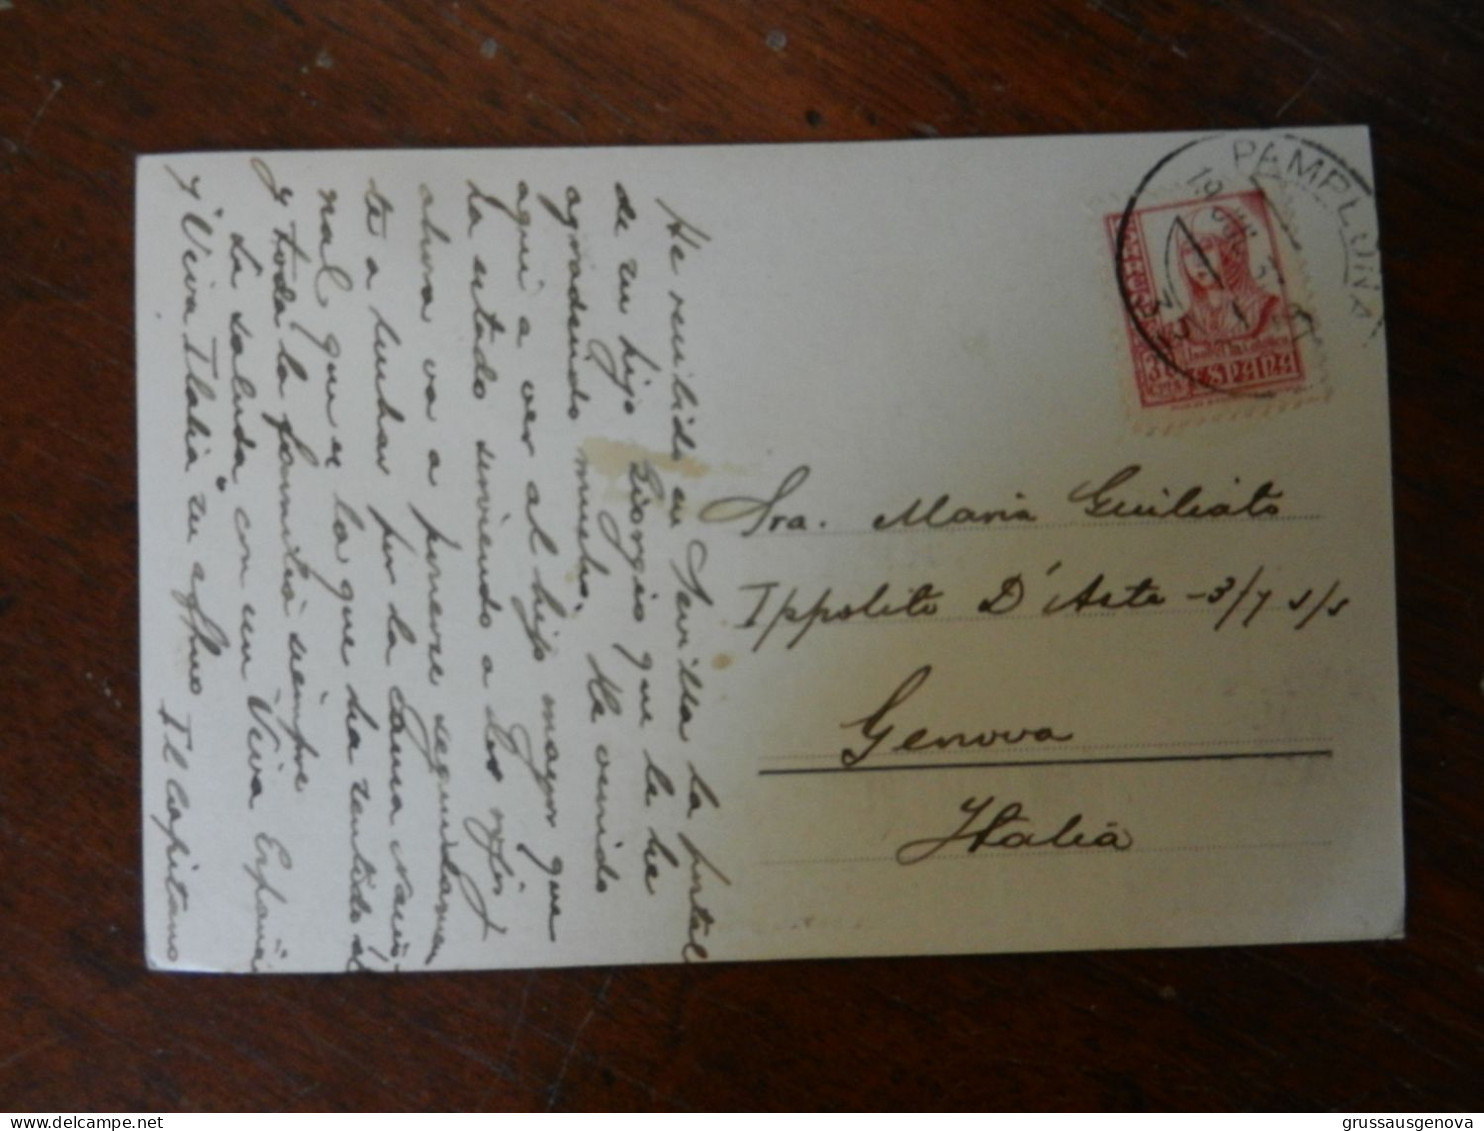 He recibido en Sevilla la postal
de su hijo Giorgio que le he
agradecido mucho. He venido
aqui a ver al hijo mayor que
ha estado sirviendo a los
ahora va a ponerse
te a luchar por la causa
nal que es la que ha sentido el
y toda la familia siempre
La saluda con un Viva España
y "Viva Italia" su afmo
Il Capitano
PAMPLONA
CORREOS
30 CTS ESPAÑA
Sra. Maria Guiliato
Ippolito D'Aste -3/7 s/s
Genova
Italia
grussausgenova